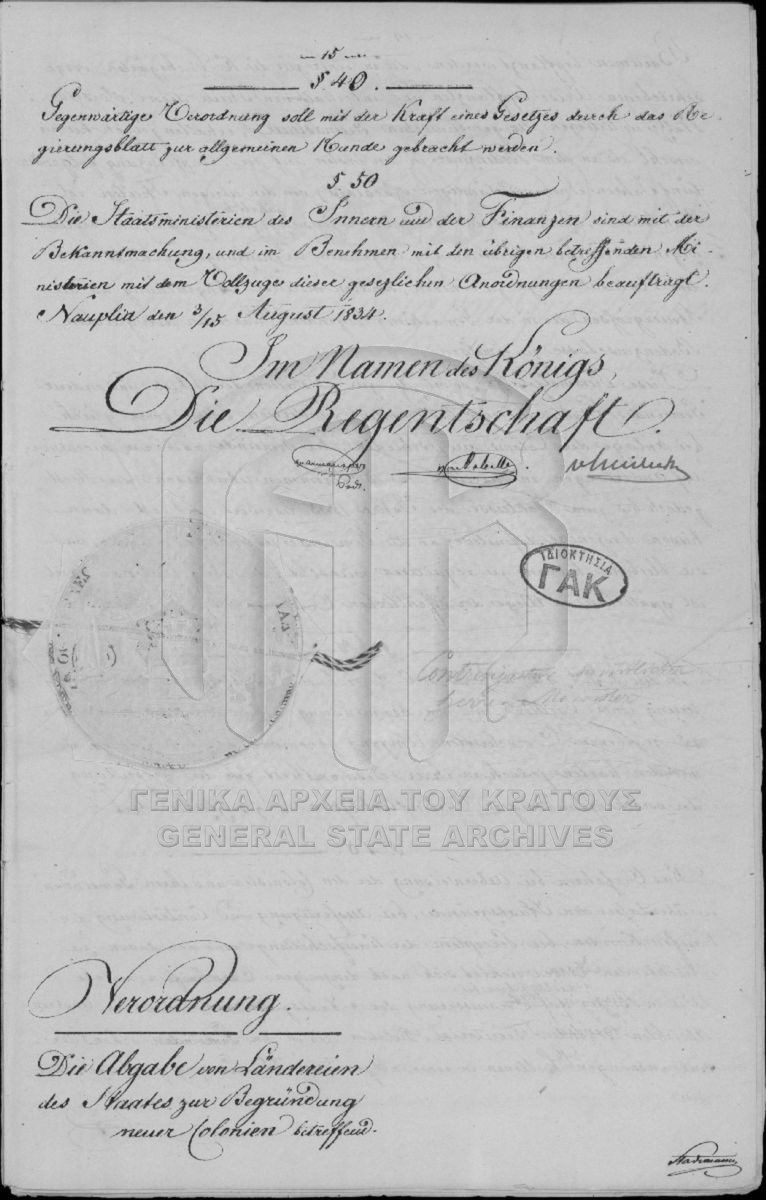 15
§ 40.
Gegenwärtige Verordnung soll mit der Kraft eines Gesetzes durch das Re-
gierungsblatt zur allgemeinen Kunde gebracht werden.
§ 50
Die Staatsministerien des Innern und der Finanzen sind mit der
Bekanntmachung, und im Benehmen mit den übrigen betreffenden Mi-
nisterien mit dem Vollzuge dieser gesezlichen Anordnungen beauftragt.
Nauplia den 3/15 August 1834.
Im Namen des Königs,
Die Regentschaft.
ΙΔΙΟΚΤΗΣΙΑ
ΓΑΚ
ΓΕΝΙΚΑ ΑΡΧΕΙΑ ΤΟΥ ΚΡΑΤΟΥΣ
GENERAL STATE ARCHIVES
Verordnung.
Die Abgabe von Ländereien
des Staates zur Begründung
neuer Colonien betreffend.